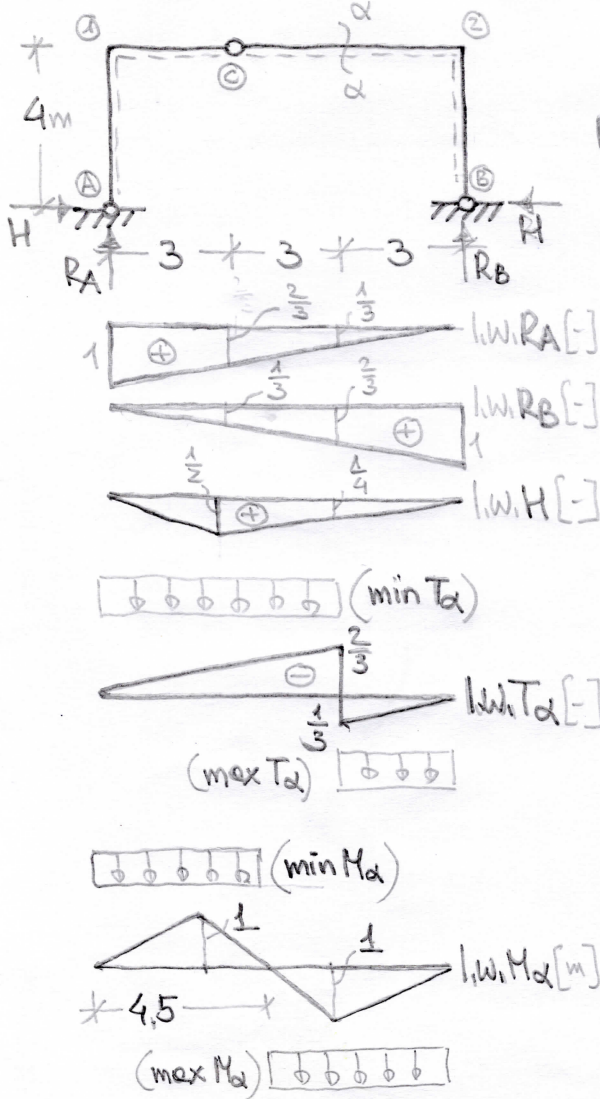 1 α 2
C
α
4m
A B
H H
RA 3 3 3 RB
2/3 1/3
1 + l.w.RA [-]
1/3 2/3
+ 1 l.w.RB [-]
1/2 1/4
+ l.w.H [-]
(min Tα)
2/3
-
1/3 l.w.Tα [-]
(max Tα)
(min Mα)
1 1
l.w.Mα [m]
4,5
(max Mα)